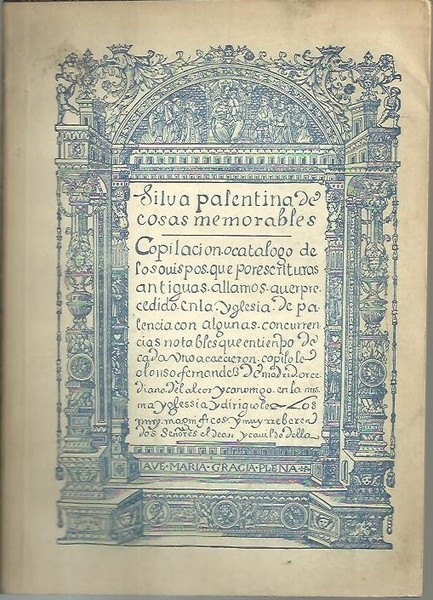 Silva palentina de
cosas memorables
Copilacion.o catalogo de
los ouispos. que por escrituras
antiguas. allamos. auer pre
cedido. En la yglesia. de pa
lencia con algunas. concurren
cias notables que en tienpo de
cada vno acaecieron. copilole
alonso fernandes de madrid. arce
diano. del alcor y canonigo. en la mis
ma yglessia y dirigiole Los
muy. magnificos. y muy reberen
dos Señores el dean y cauildo della
AVE·MARIA·GRACIA·PLENA